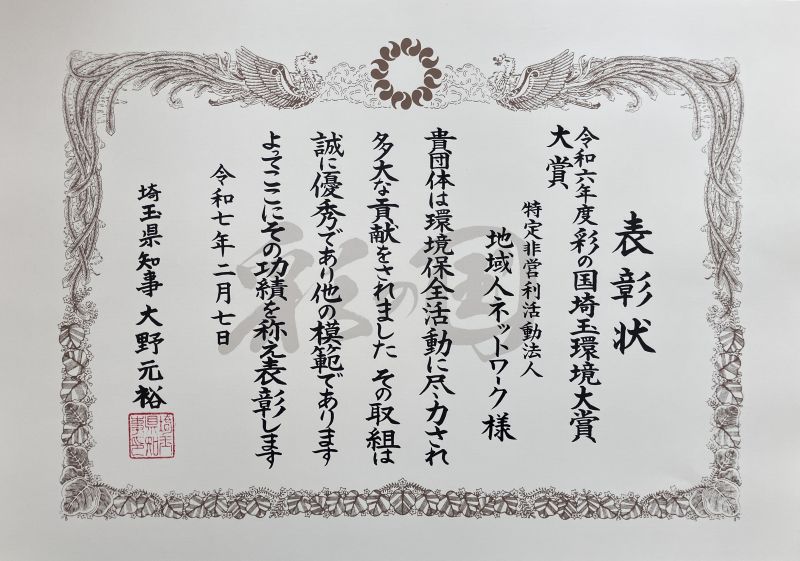 表彰状
令和六年度 彩の国埼玉環境大賞
大賞
特定非営利活動法人
地域人ネットワーク 様
貴団体は環境保全活動に尽力され
多大な貢献をされました その取組は
誠に優秀であり他の模範であります
よってここにその功績を称え表彰します
令和七年二月七日
埼玉県知事 大野元裕
埼玉県知事印
彩の国